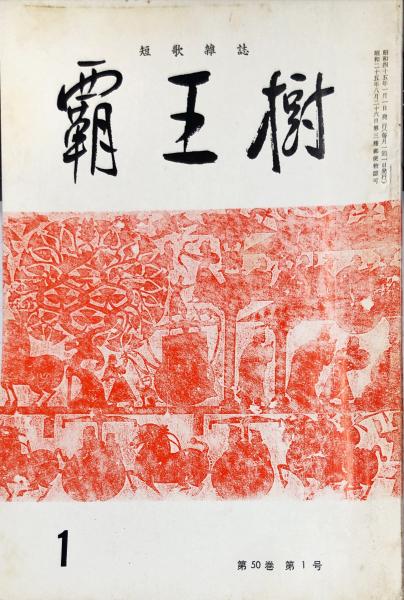 短歌雑誌
覇王樹
昭和四十五年一月一日発行(毎月一回一日発行)
昭和二十五年八月二十六日第三種郵便物認可
1
第50巻 第1号